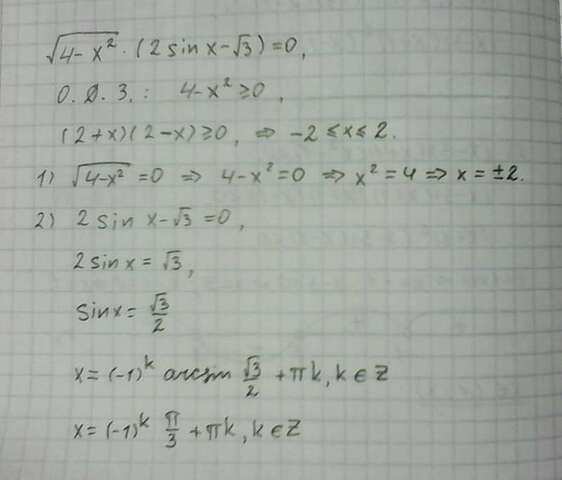 √(4-x²) · (2 sin x - √3) = 0,
О.Д.З.: 4-x² ≥ 0,
(2+x)(2-x) ≥ 0, ⇒ -2 ≤ x ≤ 2.
1) √(4-x²) = 0 ⇒ 4-x² = 0 ⇒ x² = 4 ⇒ x = ±2.
2) 2 sin x - √3 = 0,
2 sin x = √3,
sin x = √3/2
x = (-1)^k arcsin √3/2 + πk, k ∈ Z
x = (-1)^k π/3 + πk, k ∈ Z